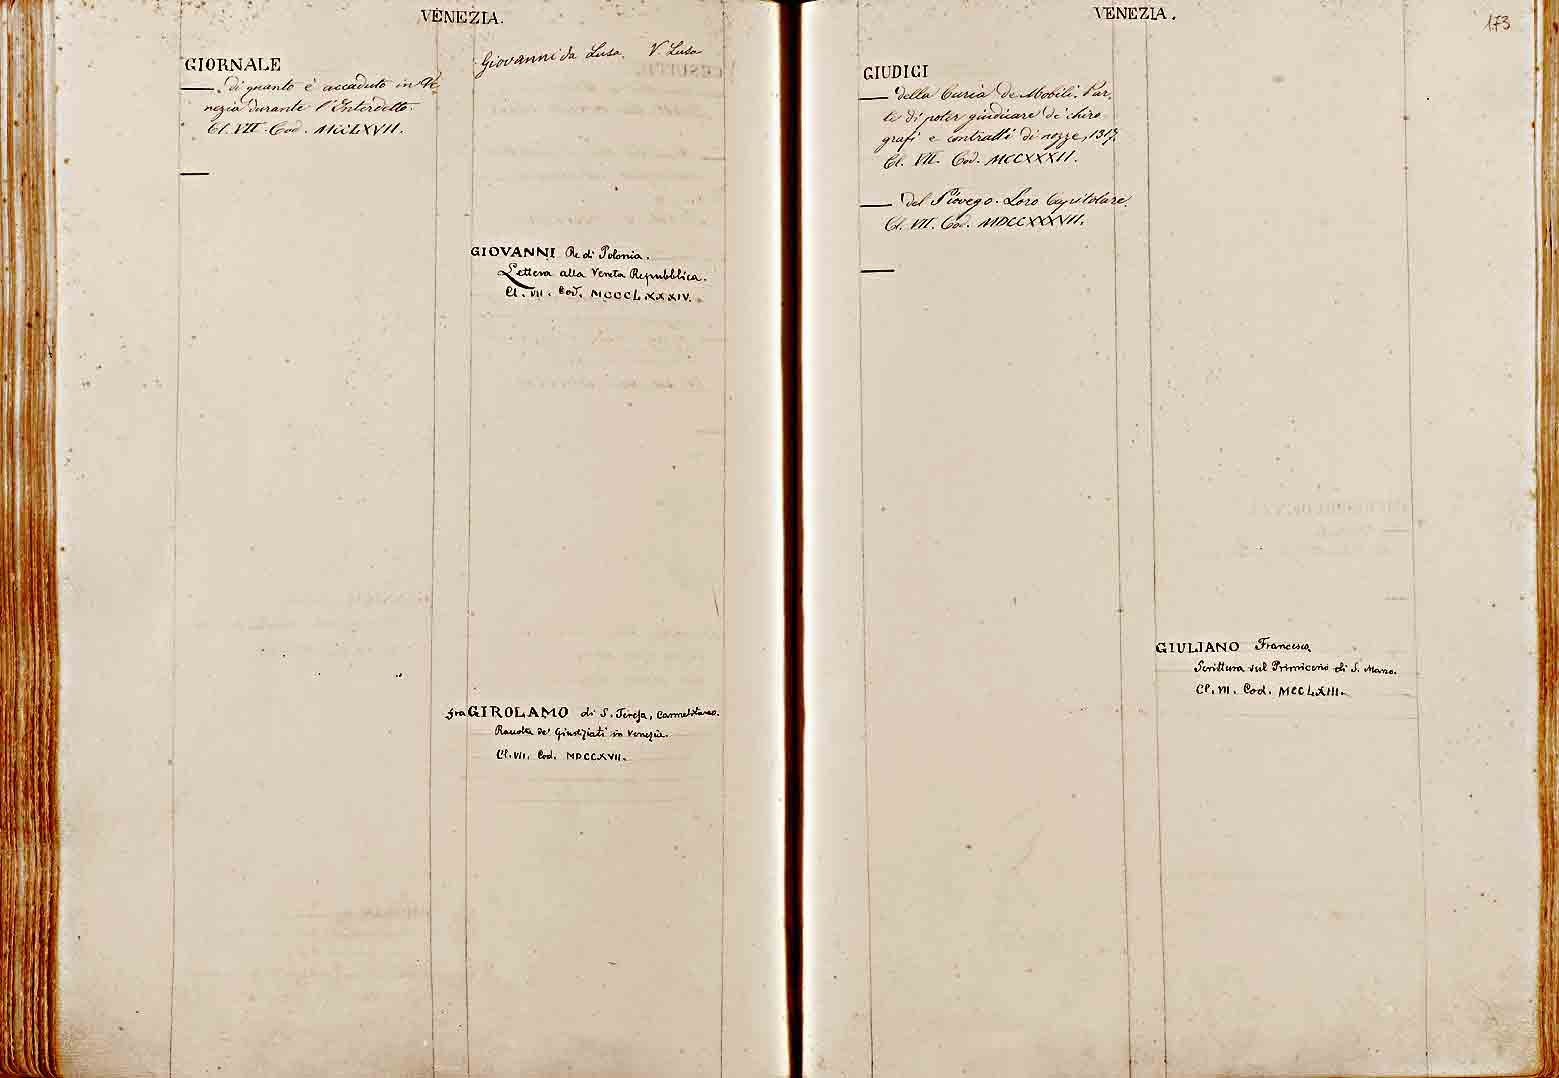 VENEZIA.
GIORNALE
— di quanto è accaduto in Ve
nezia durante l'Interdetto.
Cl. VII. Cod. MCCLXVII.
—
Giovanni da Lusa. V. Lusa
GIOVANNI Re di Polonia.
Lettera alla Veneta Repubblica.
Cl. VII. Cod. MCCCLXXXIV.
fra GIROLAMO di S. Teresa, Carmelitano.
Raccolta de' Giustiziati in Venezia.
Cl. VII. Cod. MDCCXVII.
VENEZIA.
173
GIUDICI
— della Curia de Mobili. Par-
te di poter giudicare de' chiro
grafi e contratti di nozze, 1317.
Cl. VII. Cod. MCCXXXII.
— del Piovego. Loro Capitolare.
Cl. VII. Cod. MDCCXXXVII.
—
GIULIANO Francesco
Scrittura sul Primicerio di S. Marco.
Cl. VII. Cod. MCCLXIII.